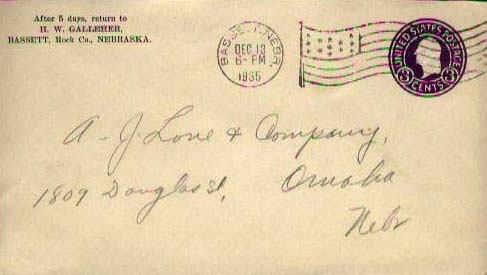 After 5 days, return to
H. W. GALLEHER,
BASSETT, Rock Co., NEBRASKA.
BASSETT, NEBR.
DEC 13
6-PM
1935
UNITED STATES POSTAGE
3 3
CENTS
A-J. Love & Company,
1809 Douglas St, Omaha
Nebr